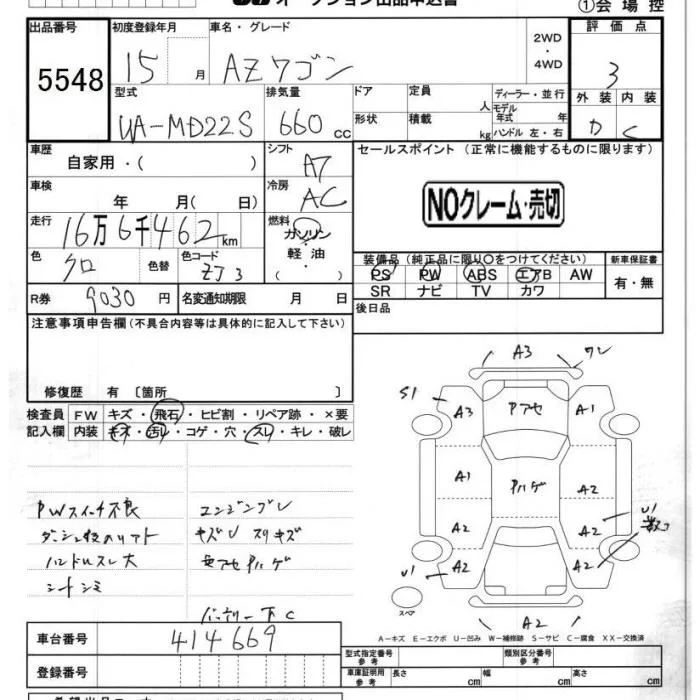 オークション出品申込書
①会場控
出品番号 初度登録年月 車名・グレード 2WD・4WD 評価点
5548 15 月 AZワゴン 3
型式 排気量 ドア 定員 人 ディーラー・並行 外装 内装
UA-MD22S 660 cc 形状 積載 kg モデル年式 年 ハンドル 左・右 D C
車歴 自家用・( ) シフト A7 セールスポイント (正常に機能するものに限ります)
車検 年 月( 日) 冷房 AC
NOクレーム・売切
走行 16万6千462km 燃料 ガソリン・軽油・( )
色 クロ 色替 色コード ZJ3
装備品(純正品に限り○をつけてください) 新車保証書
PS PW ABS エアB AW 有・無
SR ナビ TV カワ
R券 9030 円 名変通知期限 月 日
後日品
注意事項申告欄(不具合内容等は具体的に記入して下さい)
修復歴 有 〔箇所 〕
検査員 FW キズ・飛石・ヒビ割・リペア跡・×要
記入欄 内装 キズ・汚れ・コゲ・穴・スレ・キレ・破レ
PWスイッチ不良 エンジンブレ
キズU スリキズ
ハンドルスレ大
シートシミ
バッテリー下C
A3 ワレ
S1 A3 Pアセ A1
A1 Pハゲ A2
A2 A2 U1
U1 A2 A2
スペア
A2
A-キズ E-エクボ U-凹み W-補修跡 S-サビ C-腐食 XX-交換済
車台番号 414669
型式指定番号 参考 類別区分番号 参考
登録番号 車庫証明用 参考 長さ cm 幅 cm 高さ cm